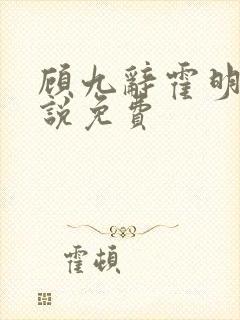 顾九辭霍明
說免費
霍頓